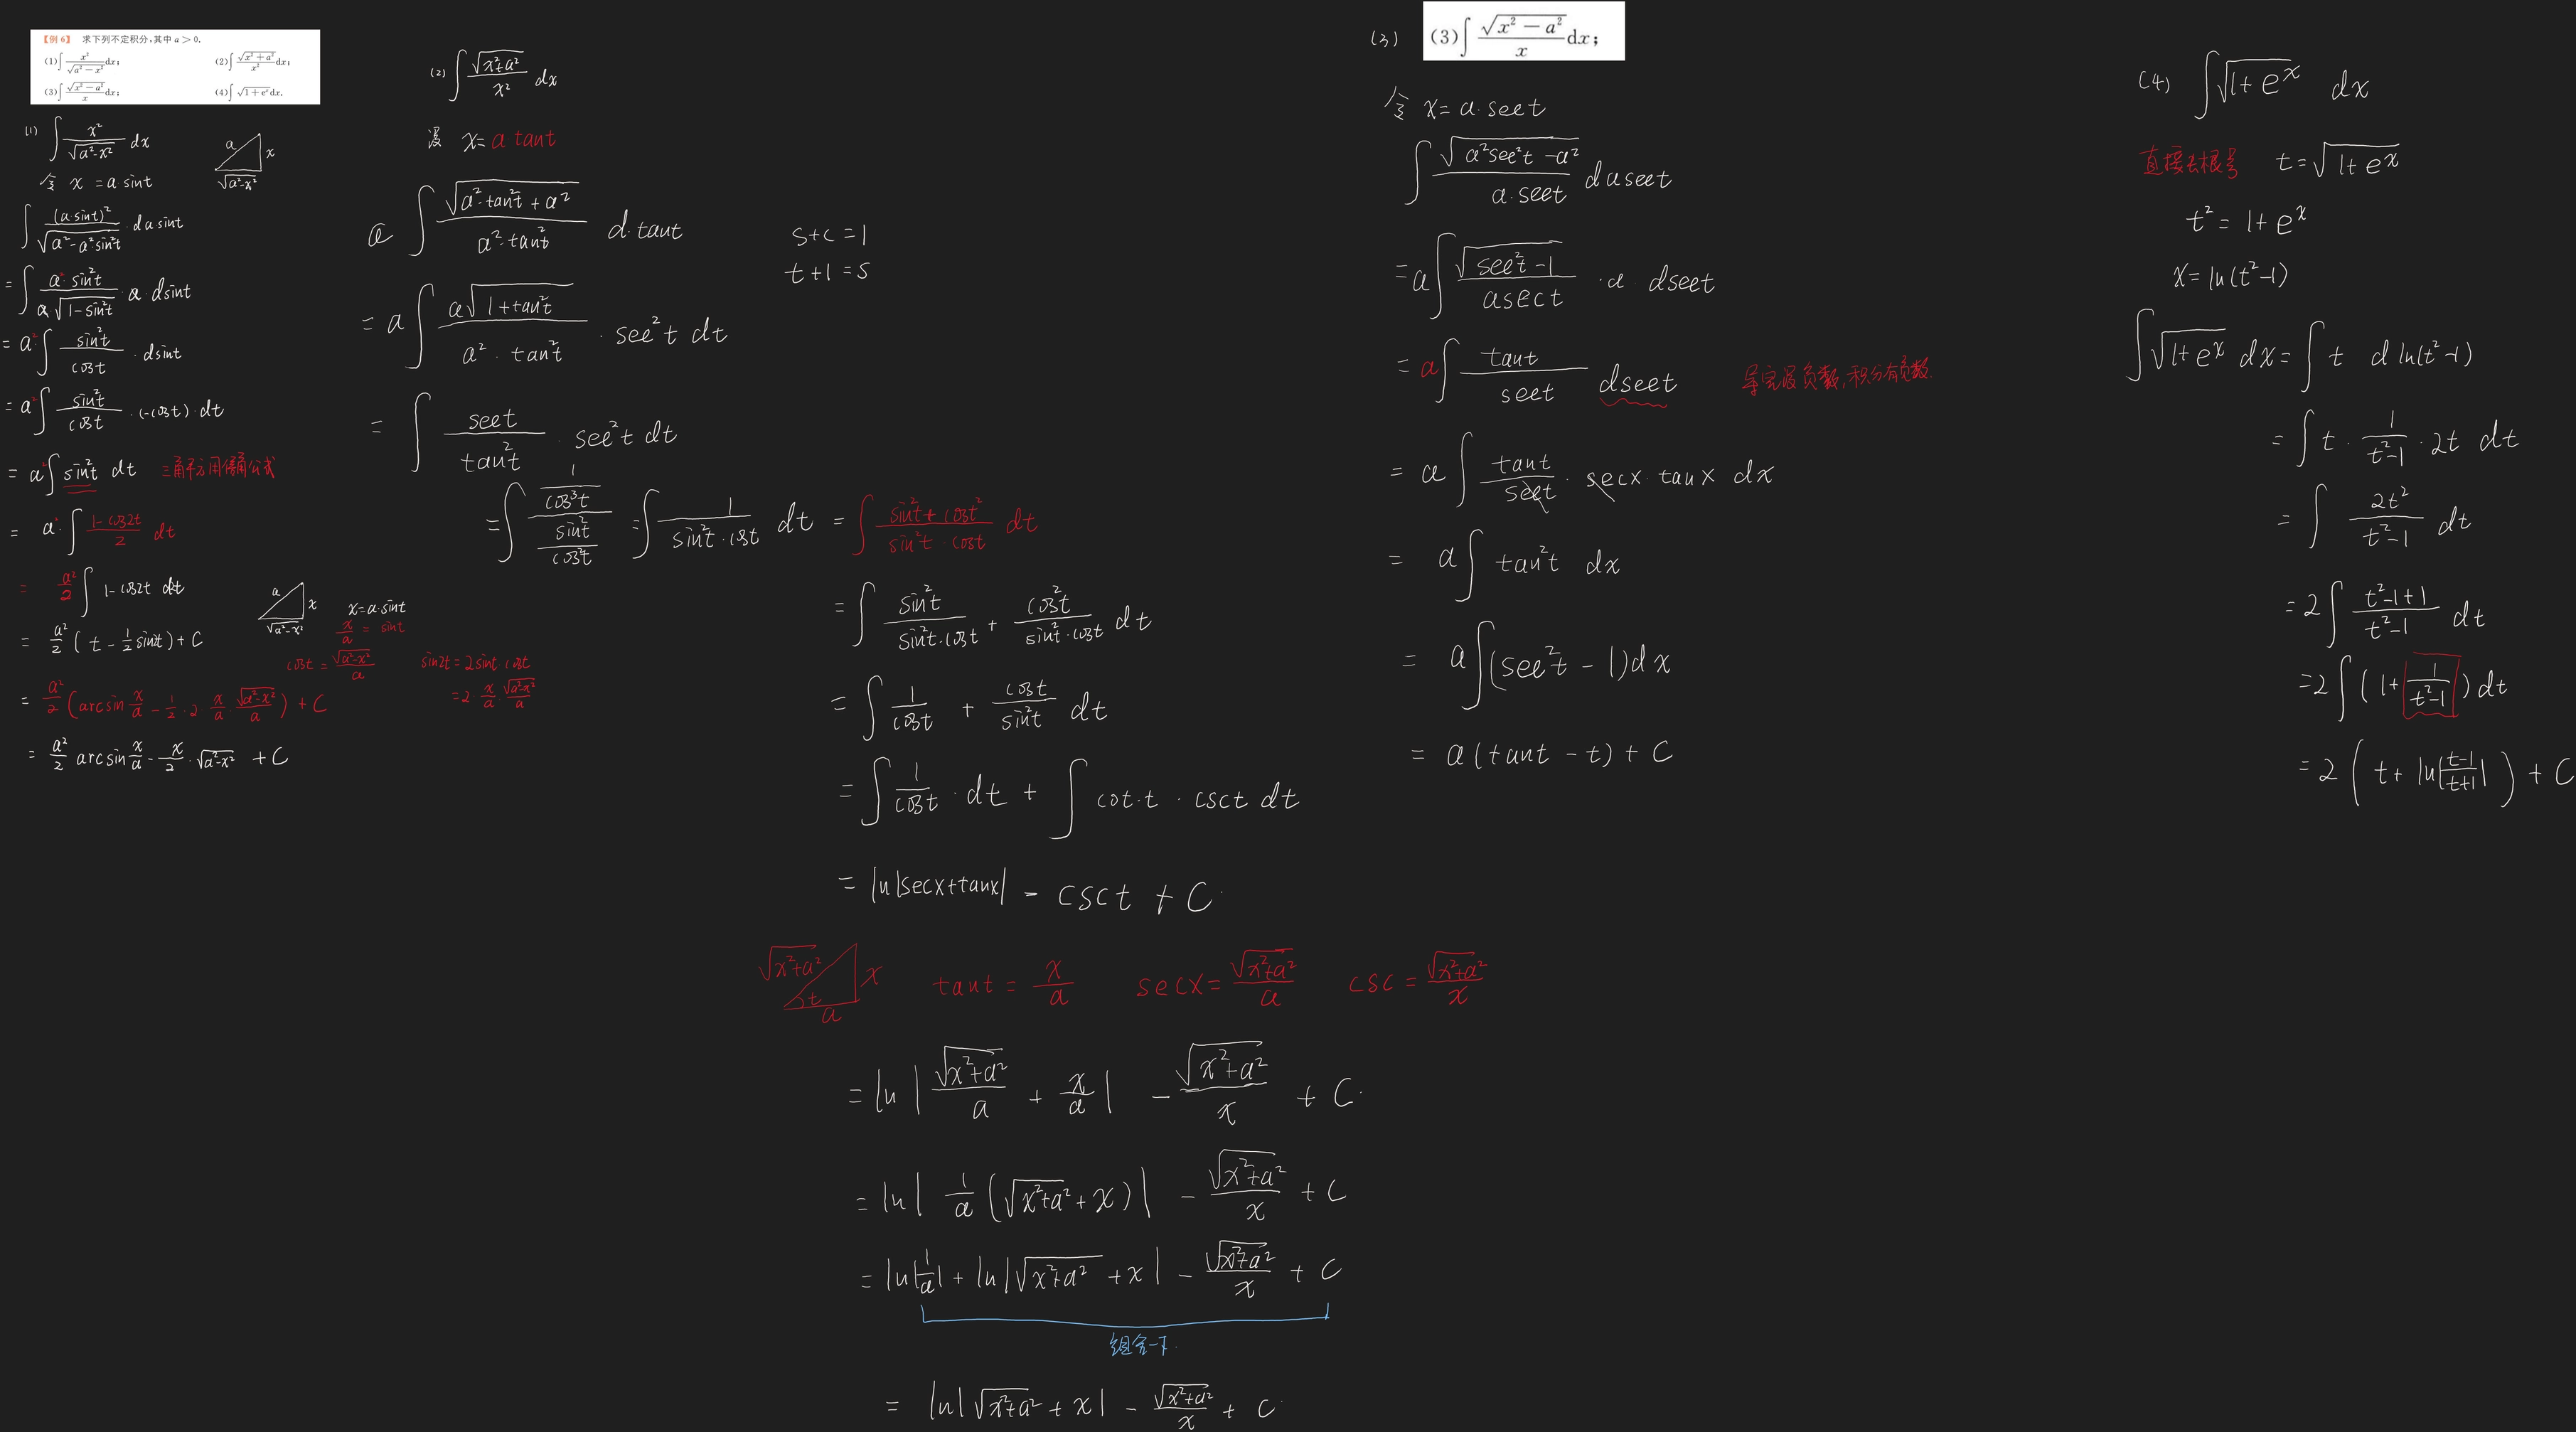 【例6】 求下列不定积分,其中 a > 0.
(1)∫ x²/√(a²−x²) dx;  (2)∫ √(x²+a²)/x² dx;
(3)∫ √(x²−a²)/x dx;  (4)∫ √(1+eˣ) dx.
(1) ∫ x²/√(a²-x²) dx
a x √(a²-x²)
令 x = a·sint
∫ (a·sint)²/√(a²-a²·sin²t) · da·sint
= ∫ a²·sin²t/(a·√(1-sin²t)) · a · dsint
= a² ∫ sin²t/cost · dsint
= a² ∫ sin²t/cost · (-cost)·dt
= a² ∫ sin²t dt 三角平方用倍角公式
= a² · ∫ (1-cos2t)/2 dt
= a²/2 ∫ 1-cos2t dt
a x √(a²-x²)
x=a·sint
x/a = sint
= a²/2 (t - 1/2 sin2t) + C
cost = √(a²-x²)/a
sin2t = 2sint cost
= 2 x/a · √(a²-x²)/a
= a²/2 (arcsin x/a - 1/2 · 2 · x/a · √(a²-x²)/a) + C
= a²/2 arcsin x/a - x/2 · √(a²-x²) + C
(2) ∫ √(x²+a²)/x² dx
设 x= a tant
a ∫ √(a²·tan²t + a²)/(a²·tan²t) d·tant
s+c = 1
t+1 = s
= a ∫ a√(1+tan²t)/(a²·tan²t) · sec²t dt
= ∫ sect/tan²t · sec²t dt
= ∫ (1/cos³t)/(sin²t/cos²t) = ∫ 1/(sin²t·cost) dt = ∫ (sin²t+cos²t)/(sin²t·cost) dt
= ∫ sin²t/(sin²t·cost) + cos²t/(sin²t·cost) dt
= ∫ 1/cost + cost/sin²t dt
= ∫ 1/cost · dt + ∫ cot·t · csct dt
= ln|secx+tanx| - csct + C
√(x²+a²) x t a
tant = x/a secx = √(x²+a²)/a csc = √(x²+a²)/x
= ln | √(x²+a²)/a + x/a | - √(x²+a²)/x + C
= ln | 1/a (√(x²+a²) + x) | - √(x²+a²)/x + C
= ln|1/a| + ln|√(x²+a²) + x| - √(x²+a²)/x + C
组合一下.
= ln|√(x²+a²) + x| - √(x²+a²)/x + C
(3) (3)∫ √(x²−a²)/x dx;
令 x= a·sect
∫ √(a²sec²t-a²)/(a·sect) dasect
= a∫ √(sec²t-1)/(asect) · a · dsect
= a∫ tant/sect dsect
= a ∫ tant/sect · secx·tanx dx
= a∫ tan²t dx
= a∫(sec²t - 1)dx
= a(tant - t) + C
(4) ∫√(1+eˣ) dx
直接去根号 t = √(1+eˣ)
t² = 1+eˣ
x = ln(t²-1)
∫√(1+eˣ) dx = ∫ t d ln(t²-1)
= ∫ t · 1/(t²-1) · 2t dt
= ∫ 2t²/(t²-1) dt
= 2∫ (t²-1+1)/(t²-1) dt
= 2∫ (1+ 1/(t²-1)) dt
= 2 ( t + ln|(t-1)/(t+1)| ) + C